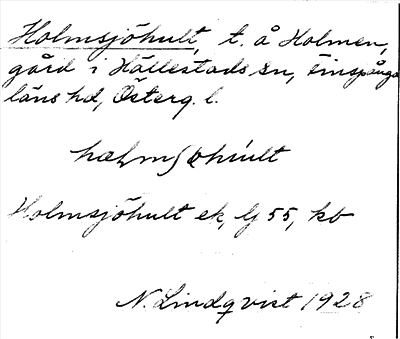 Holmsjöhult, t. å Holmen,
gård i Hällestads sn, Finspånga
läns hd, Österg. l.
Holmsjöhult ek, lj 55, kb
N. Lindqvist 1928